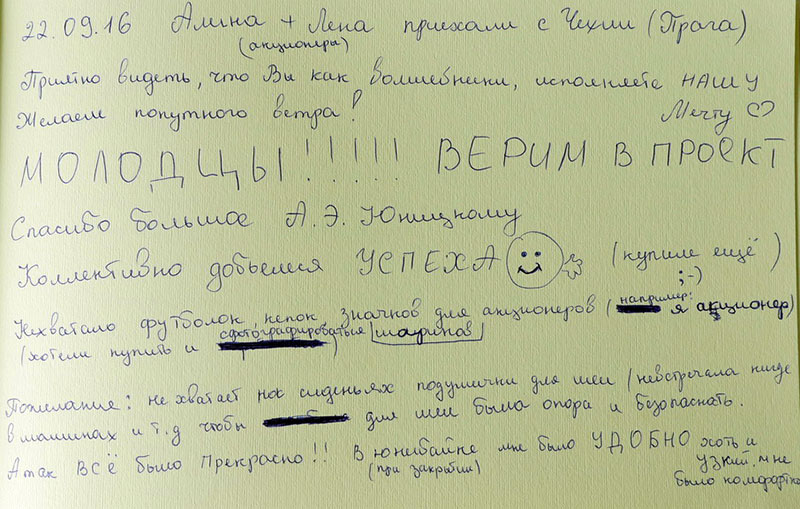 22.09.16 Алина + Лена приехали с Чехии (Прага)
(акционеры)
Приятно видеть, что Вы как волшебники, исполняете НАШУ
Желаем попутного ветра! Мечту ♡
МОЛОДЦЫ!!!!!! ВЕРИМ В ПРОЕКТ
Спасибо большое А.Э. Юницкому
Коллективно добьемся УСПЕХА (купили ещё)
;-)
Нехватало футболок, кепок значков для акционеров (например: я акционер)
(хотели купить и сфотографироваться) шариков
Пожелание: не хватает на сиденьях подушички для шеи (невстречала нигде
в машинах и т.д чтобы для шеи была опора и безопаснать.
А так ВСЁ было прекрасно!! В юнибайке мне было УДОБНО хоть и
(при закрытии) узкий, мне
было комфортно